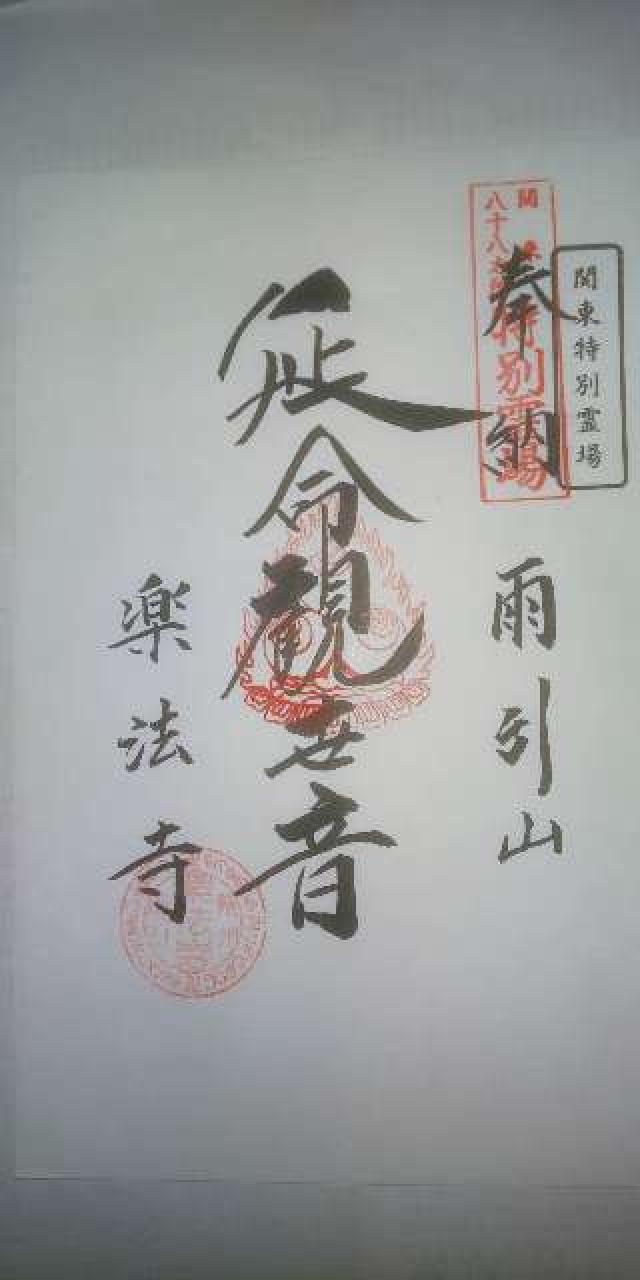 関東特別霊場
関東
八十八ヶ所
特別霊場
奉納
雨引山
延命観世音
楽法寺